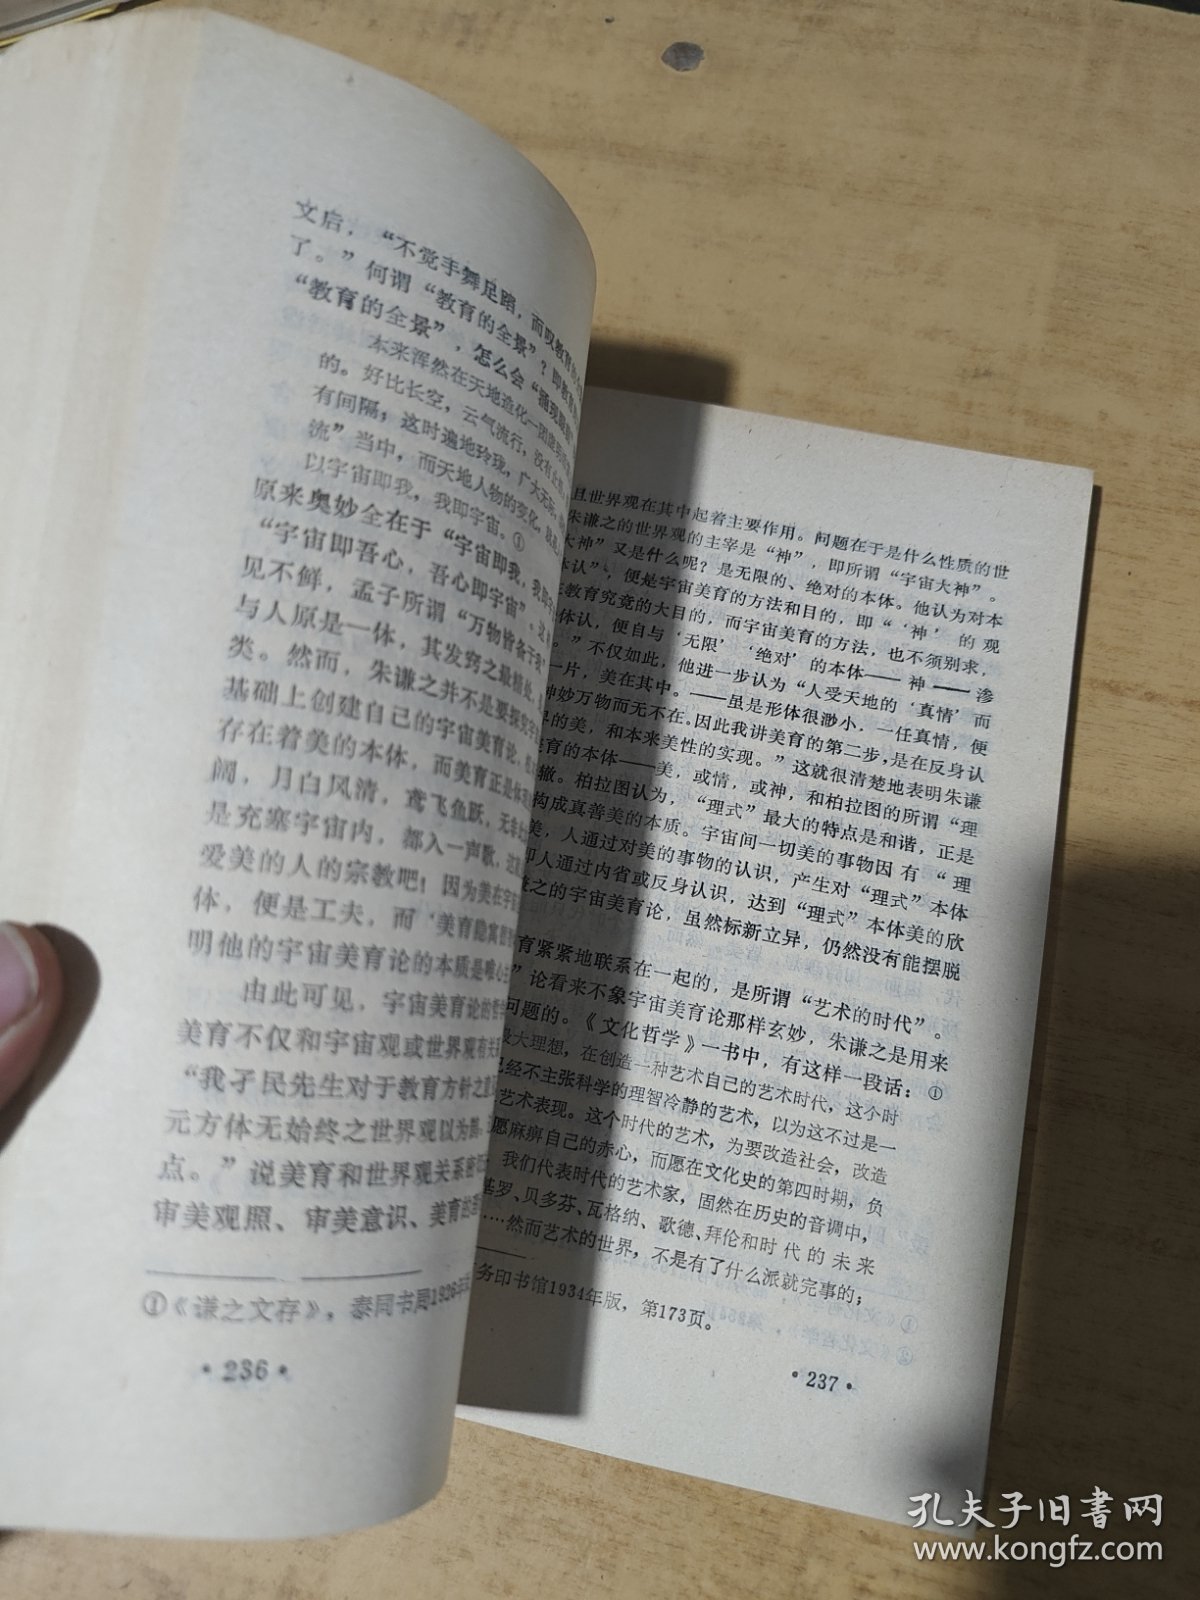 文后，“不觉手舞足蹈，而叹教育
了。”何谓“教育的全景”？即教育
“教育的全景”，怎么会“涌现眼前”
本来浑然在天地造化一团虚明
的。好比长空，云气流行，没有止
有间隔；这时遍地玲珑，广大无
流”当中，而天地人物的变化，
以宇宙即我，我即宇宙。①
原来奥妙全在于“宇宙即我，我即宇
“宇宙即吾心，吾心即宇宙”。这
见不鲜，孟子所谓“万物皆备于
与人原是一体，其发窍之最精处，
类。然而，朱谦之并不是要探究宇
基础上创建自己的宇宙美育论，
存在着美的本体，而美育正是体
阔，月白风清，鸢飞鱼跃，无
是充塞宇宙内，都入一声歌，这
爱美的人的宗教吧！因为美在宇
体，便是工夫，而‘美育隐寓
明他的宇宙美育论的本质是唯心
由此可见，宇宙美育论的哲
美育不仅和宇宙观或世界观有关
“我孑民先生对于教育方针之意
元方体无始终之世界观以为鹄。
点。”说美育和世界观关系密
审美观照、审美意识、美育的
①《谦之文存》，泰同书局1926年
·236·
且世界观在其中起着主要作用。问题在于是什么性质的世
朱谦之的世界观的主宰是“神”，即所谓“宇宙大神”。
大神”又是什么呢？是无限的、绝对的本体。他认为对本
本认”，便是宇宙美育的方法和目的，即“‘神’的观
教育究竟的大目的，而宇宙美育的方法，也不须别求，
体认，便自与‘无限’‘绝对’的本体——神——渗
。”不仅如此，他进一步认为“人受天地的‘真情’而
一片，美在其中。——虽是形体很渺小，一任真情，便
神妙万物而无不在。因此我讲美育的第二步，是在反身认
界的美，和本来美性的实现。”这就很清楚地表明朱谦
美育的本体——美，或情，或神，和柏拉图的所谓“理
辙。柏拉图认为，“理式”最大的特点是和谐，正是
构成真善美的本质。宇宙间一切美的事物因有“理
美，人通过对美的事物的认识，产生对“理式”本体
即人通过内省或反身认识，达到“理式”本体美的欣
之的宇宙美育论，虽然标新立异，仍然没有能摆脱
育紧紧地联系在一起的，是所谓“艺术的时代”。
”论看来不象宇宙美育论那样玄妙，朱谦之是用来
问题的。《文化哲学》一书中，有这样一段话：①
最大理想，在创造一种艺术自己的艺术时代，这个时
已经不主张科学的理智冷静的艺术，以为这不过是一
艺术表现。这个时代的艺术，为要改造社会，改造
愿麻痹自己的赤心，而愿在文化史的第四时期，负
我们代表时代的艺术家，固然在历史的音调中，
基罗、贝多芬、瓦格纳、歌德、拜伦和时代的未来
……然而艺术的世界，不是有了什么派就完事的；
务印书馆1934年版，第173页。
·237·
孔夫子旧书网
www.kongfz.com